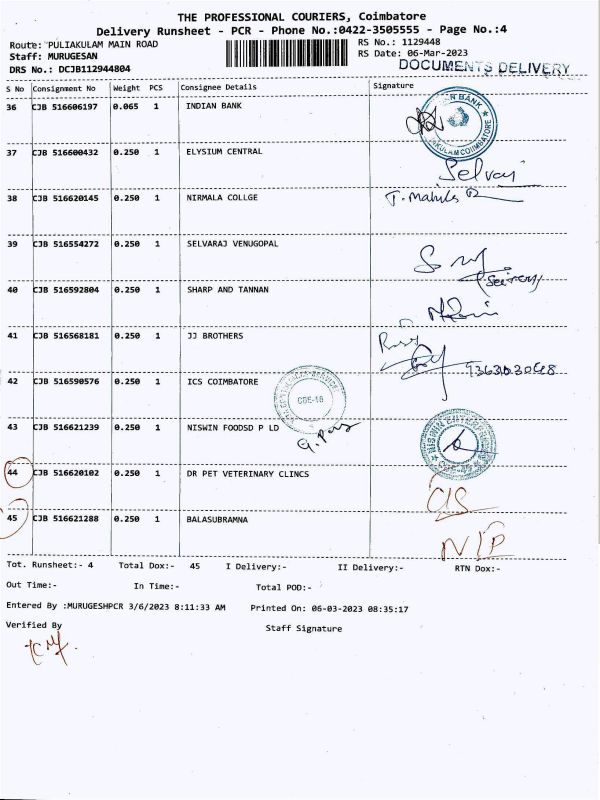 THE PROFESSIONAL COURIERS, Coimbatore
Delivery Runsheet - PCR - Phone No.:0422-3505555 - Page No.:4
Route: PULIAKULAM MAIN ROAD RS No.: 1129448
Staff: MURUGESAN RS Date: 06-Mar-2023
DRS No.: DCJB112944804 DOCUMENTS DELIVERY
S No Consignment No Weight PCS Consignee Details Signature
36 CJB 516606197 0.065 1 INDIAN BANK
37 CJB 516600432 0.250 1 ELYSIUM CENTRAL
Selvaj
38 CJB 516620145 0.250 1 NIRMALA COLLGE
39 CJB 516554272 0.250 1 SELVARAJ VENUGOPAL
40 CJB 516592804 0.250 1 SHARP AND TANNAN
41 CJB 516568181 0.250 1 JJ BROTHERS
42 CJB 516590576 0.250 1 ICS COIMBATORE
CBE-18
43 CJB 516621239 0.250 1 NISWIN FOODSD P LD
44 CJB 516620102 0.250 1 DR PET VETERINARY CLINCS
C/S
45 CJB 516621288 0.250 1 BALASUBRAMNA
N/P
Tot. Runsheet:- 4 Total Dox:- 45 I Delivery:- II Delivery:- RTN Dox:-
Out Time:- In Time:- Total POD:-
Entered By :MURUGESHPCR 3/6/2023 8:11:33 AM Printed On: 06-03-2023 08:35:17
Verified By Staff Signature